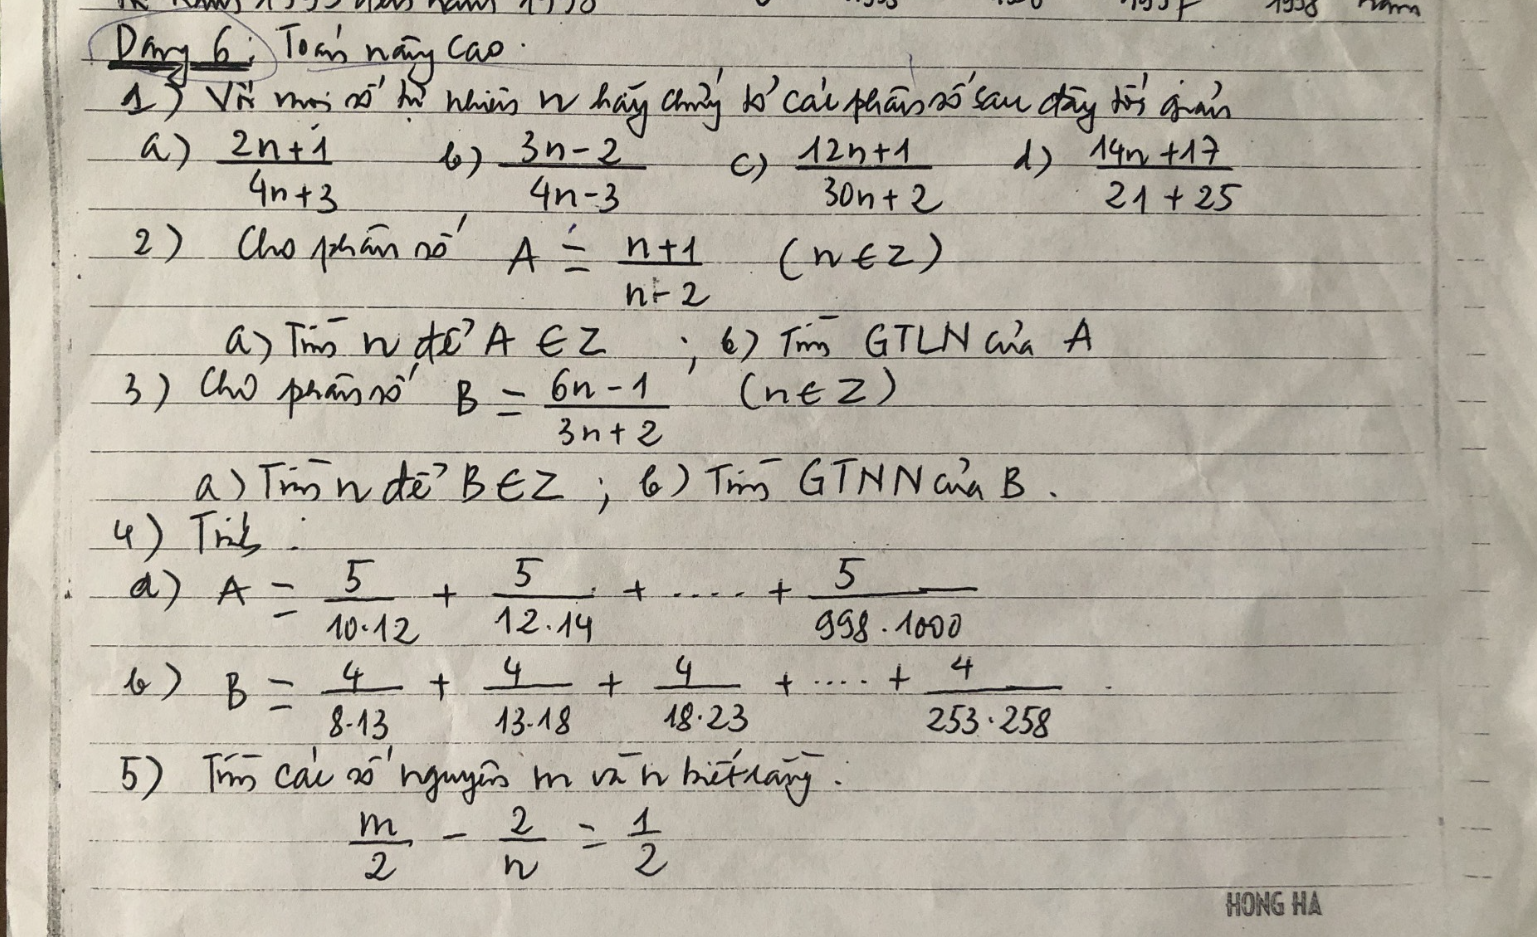 1995 1996 1997 1998 năm
Dạng 6: Toán nâng cao.
1) Với mọi số tự nhiên n hãy chứng tỏ các phân số sau đây tối giản
a) 2n+1/4n+3 b) 3n-2/4n-3 c) 12n+1/30n+2 d) 14n+17/21+25
2) Cho phân số A = n+1/n-2 (n ∈ Z)
a) Tìm n để A ∈ Z ; b) Tìm GTLN của A
3) Cho phân số B = 6n-1/3n+2 (n ∈ Z)
a) Tìm n để B ∈ Z ; b) Tìm GTNN của B.
4) Tính :
a) A = 5/10.12 + 5/12.14 + .... + 5/998.1000
b) B = 4/8.13 + 4/13.18 + 4/18.23 + .... + 4/253.258
5) Tìm các số nguyên m và n biết rằng:
m/2 - 2/n = 1/2
HONG HA